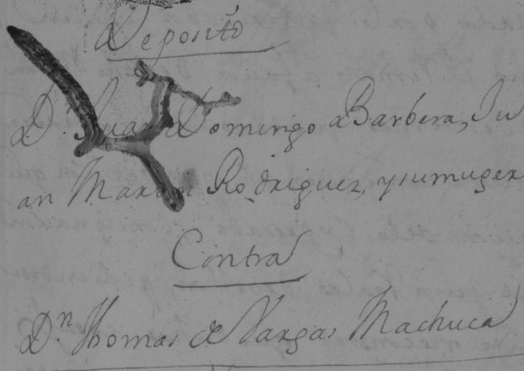 Deposito
D. Juan Domingo Barbera, Ju
an Martin Rodriguez, y su muger
Contra
Dn Thomas de Vargas Machuca